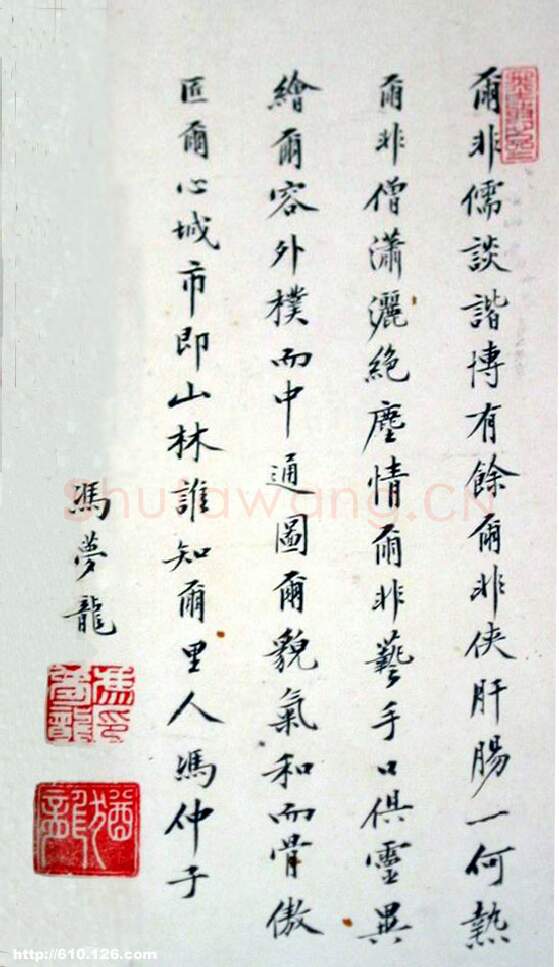 爾非儒談諧博有餘爾非俠肝腸一何熱
爾非僧瀟灑絶塵情爾非藝手口俱靈異
繪爾容外樸而中通圖爾貌氣和而骨傲
匪爾心城市即山林誰知爾里人馮仲子
馮夢龍
馮夢龍印
猶龍
Shufawang.CN
http://610.126.com